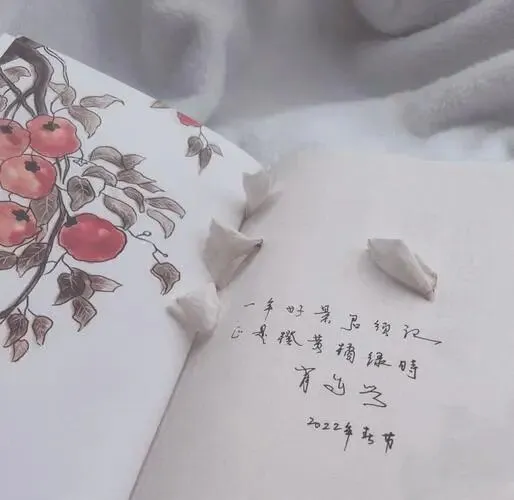 一年好景君须记
正是橙黄橘绿時
肖复兴
2022年春节